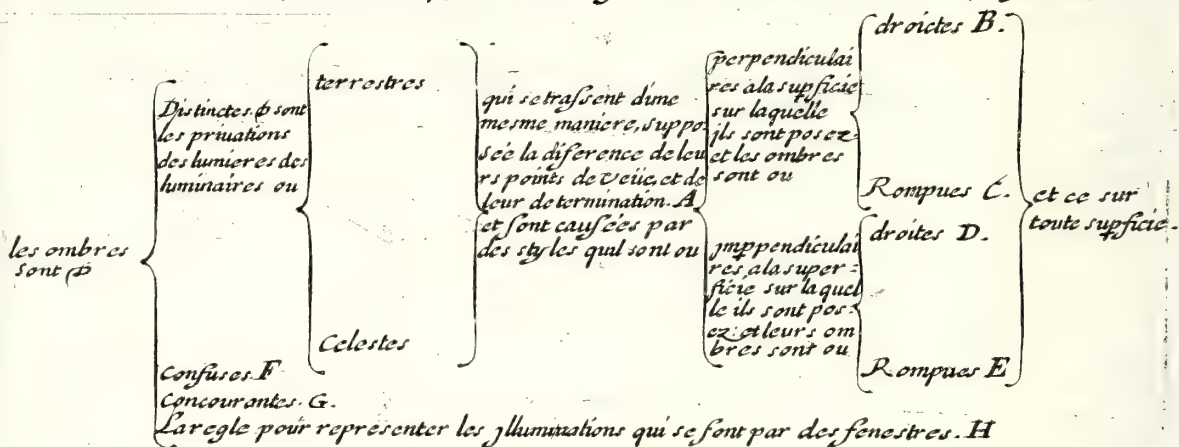 les ombres
sont
Distinctes & sont
les priuations
des lumieres des
luminaires ou
terrestres
Celestes
qui se trassent d'une
mesme maniere, suppo-
sée la diference de leu
rs points de veüe, et de
leur determination. A
et sont causées par
des styles quil sont ou
perpendiculai
res a la supficie
sur laquelle
jls sont posez-
et les ombres
sont ou
droictes B.
Rompues C.
jmppendiculai
res, a la super=
ficie sur laquel
le ils sont pos=
ez: et leurs om
bres sont ou
droites D.
Rompues E
et ce sur
toute supficie.
Confuses. F
Concourantes. G.
La regle pour representer les jlluminations qui se font par des fenestres. H